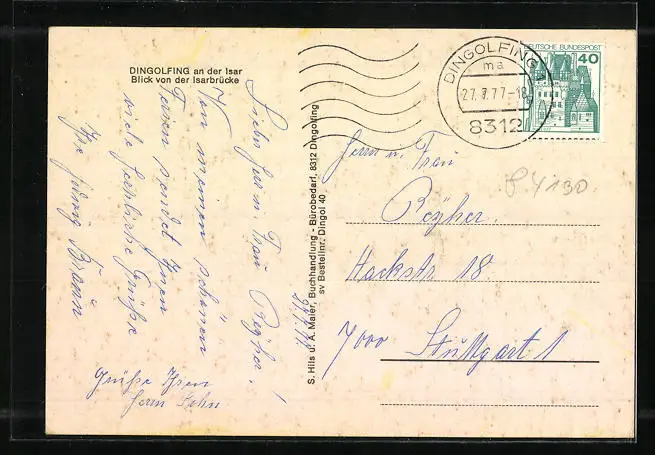 DINGOLFING an der Isar
Blick von der Isarbrücke
Liebe Herr u. Frau Reyher!
Von meinen schönen
Ferien sendet Ihnen
viele herzliche Grüße
Ihr
Braun
Grüße Ihren
Herrn Sohn
27.7.77
S. Hils u. A. Maier, Buchhandlung - Bürobedarf, 8312 Dingolfing
sv Bestellnr. Dingol 40
DINGOLFING
ma
27.7.77-18
8312
DEUTSCHE BUNDESPOST
40
Herrn u. Frau
Reyher.
Hackstr. 18
7000 Stuttgart 1